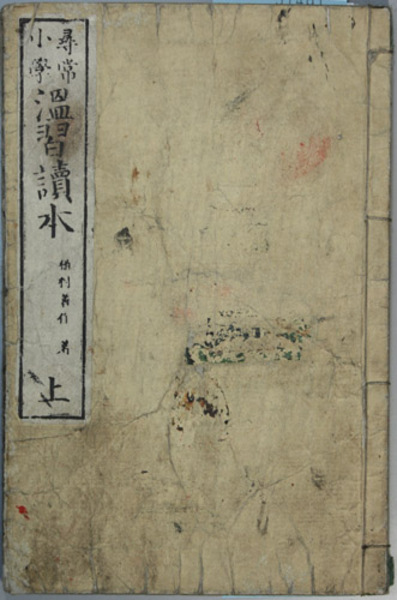 尋常
小學
溫習讀本
著
上